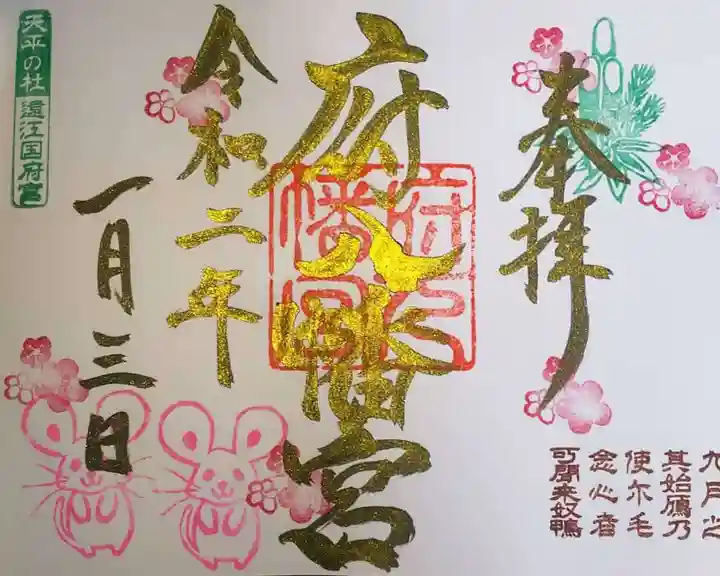 奉拝
府八幡宮
府八幡宮
令和二年
一月三日
天平の杜 遠江国府宮
九月之
其始鴈乃
使尓毛
念心者
可聞来奴鴨